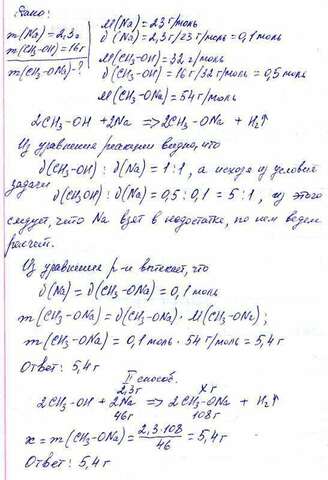 Дано:
m(Na)=2,3г
m(CH₃-OH)=16г
m(CH₃-ONa)-?
M(Na)=23г/моль
ϑ(Na)=2,3г/23г/моль=0,1моль
M(CH₃-OH)=32г/моль
ϑ(CH₃-OH)=16г/32г/моль=0,5моль
M(CH₃-ONa)=54г/моль
2CH₃-OH+2Na=>2CH₃-ONa+H₂↑
Из уравнения реакции видно, что
ϑ(CH₃-OH):ϑ(Na)=1:1, а исходя из условия
задачи
ϑ(CH₃OH):ϑ(Na)=0,5:0,1=5:1, из этого
следует, что Na взят в недостатке, по нем ведем
расчет.
Из уравнения р-и вытекает, что
ϑ(Na)=ϑ(CH₃-ONa)=0,1моль
m(CH₃-ONa)=ϑ(CH₃-ONa)·M(CH₃-ONa);
m(CH₃-ONa)=0,1моль·54г/моль=5,4г
Ответ: 5,4г
II способ.
2,3г xг
2CH₃-OH+2Na=>2CH₃-ONa+H₂↑
46г 108г
x=m(CH₃-ONa)=2,3·108/46=5,4г
Ответ: 5,4г